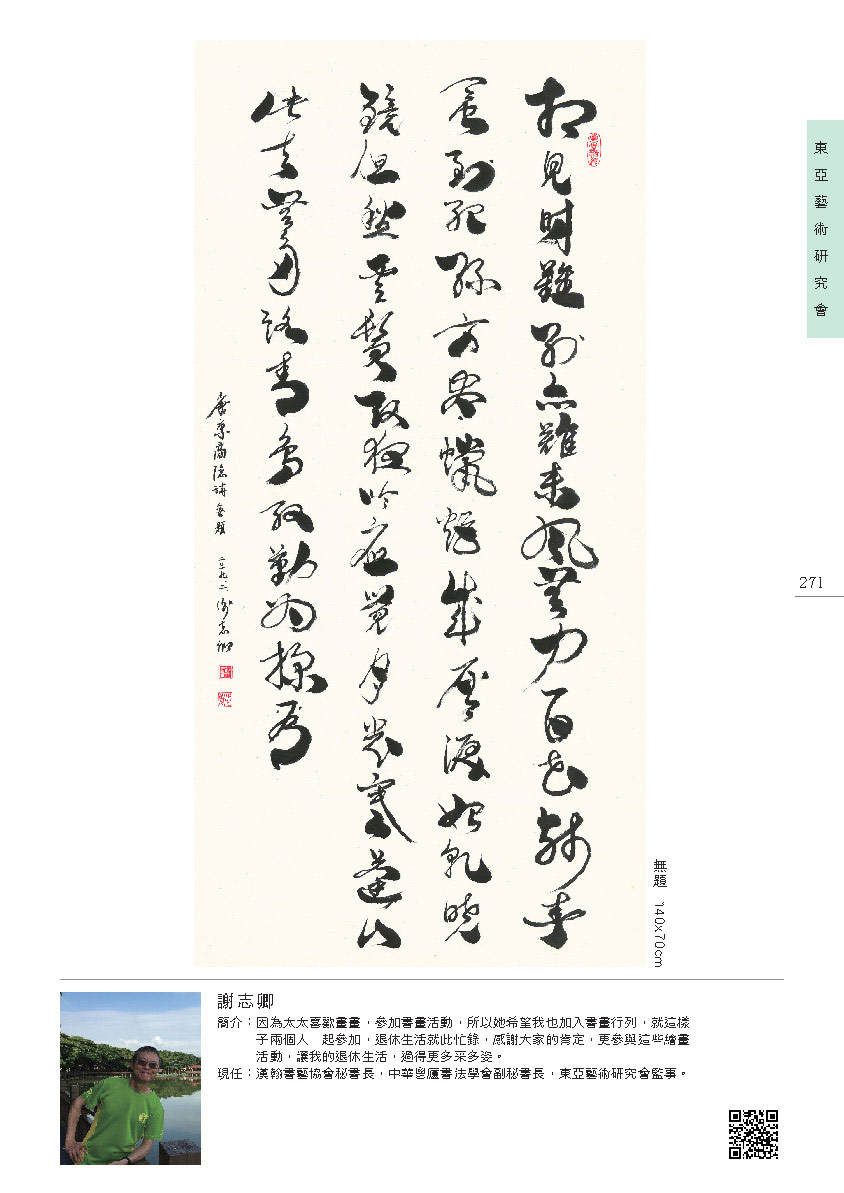 相見時難別亦難東風無力百花殘春
蠶到死絲方盡蠟炬成灰淚始乾曉
鏡但愁雲鬢改夜吟應覺月光寒蓬山
此去無多路青鳥殷勤為探看
唐李商隱詩無題 謝志卿
東亞藝術研究會
271
無題 140x70cm
謝志卿
簡介：因為太太喜歡畫畫，參加書畫活動，所以她希望我也加入書畫行列，就這樣
子兩個人　起參加，退休生活就此忙錄，感謝大家的肯定，更參與這些繪畫
活動，讓我的退休生活，過得更多采多姿。
現任：漢翰書藝協會秘書長，中華鬯廬書法學會副秘書長，東亞藝術研究會監事。